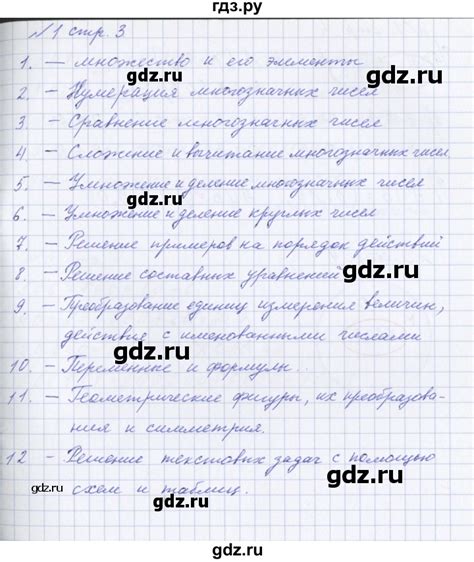 гдз.ру
№1 стр. 3
1. — множество и его элементы
gdz.ru
2. — Нумерация многозначных чисел
3. — Сравнение многозначных чисел
gdz.ru
4. — Сложение и вычитание многозначных чисел
5. — Умножение и деление многозначных чисел
gdz.ru
6. — Умножение и деление круглых чисел
7. — Решение примеров на порядок действий
gdz.ru
8 — Решение составных уравнений
9. — Преобразование единиц измерения величин,
действия с именованными числами
gdz.ru
10. — Переменные и формулы.
gdz.ru
11. — Геометрические фигуры, их преобразова-
ния и симметрия.
gdz.ru
12 — Решение текстовых задач с помощью
схем и таблиц.
gdz.ru
gdz.ru
gdz.ru